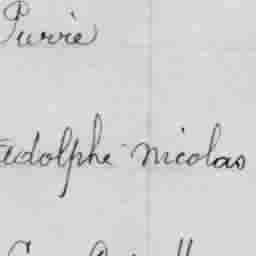 Pierre
adolphe nicolas